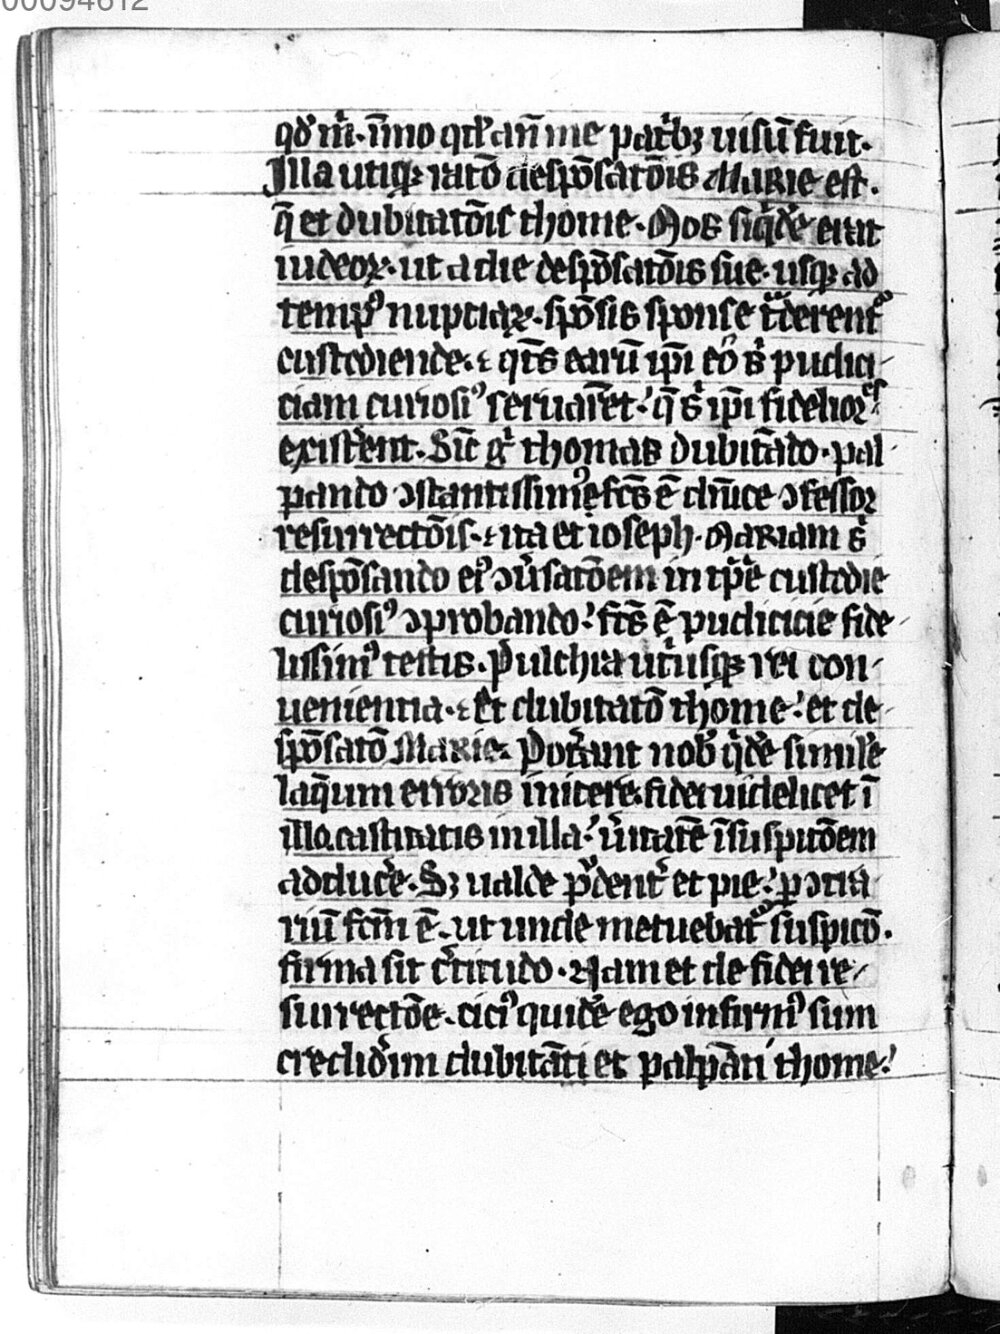 00094612
qď m̄i. īmo qď an̄ me patͥbꝫ uisū fuit.
Illa utiqꝫ ratō despōsatōis Marie est.
q̄ et dubitatōis thome. Mos siqͥdē erat
iudeoꝝ. ut a die despōsatōis sue. usqꝫ ad
tempꝰ nuptiaꝝ. spōsis sponse tͣderentͬ
custodiende. ⁊ qͣtꝰ earū ip̄i eō sͥ pudici-
ciam curiosiꝰ seruarēt. q̄ sͥ ip̄i fideliores
existerent. Sic̄ gͦ thomas dubitādo. pal-
pando ꝯstantissimꝰ fcꝰs ē dn̄ice ꝯfessor
resurrectōis. ⁊ ita et ioseph. Mariam sͥ
despōsando eiꝰ ꝯūsatōem in tp̄e custodie
curiosiꝰ ꝯprobando. fcꝰs ē pudicicie fide-
lissimꝰ testis. Pulchra utͥusqꝫ rei con-
uenientia. ⁊ Et dubitatō thome. et de-
spōsatō Marie. Poterant nob̄ qͥdē simile
laq̄um erroris inicere. fidei uidelicet ī
illo. castitatis in illa. ūitatē ī suspitōem
adducē. Sꝫ ualde pͥdentͬ et pie. ꝑ ꝯtra-
riū fcm̄ ē. ut unde metuebatͬ suspicō.
firma sit cͬtitudo. Nam et de fidei re-
surrectōe. citiꝰ quidē ego infirmꝰ sum
crediďim dubitāti et palpāti thome.